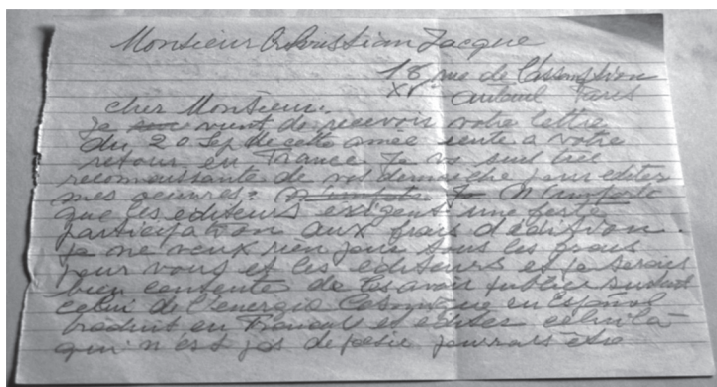 Monsieur Jacque
18 rue de l'Assomption
XV auteuil Paris
cher Monsieur.
Je vient de recevoir votre lettre
du 20 Sep de cette anée a votre
retour en France. Je vos suit tré
reconnaissante de vos demarche pour editer
mes oeuvres. N'importe
que les editeurs exigent une forte
participation aux frais d'edition.
Je ne veux rien pour tous les frais
pour vous et les editeurs et je serais
bien contente de les avoir publier surtout
celui de l'energia Cosmique en Español
traduit en Français et editer celui là
qui n'est pas de poesie pourrait être